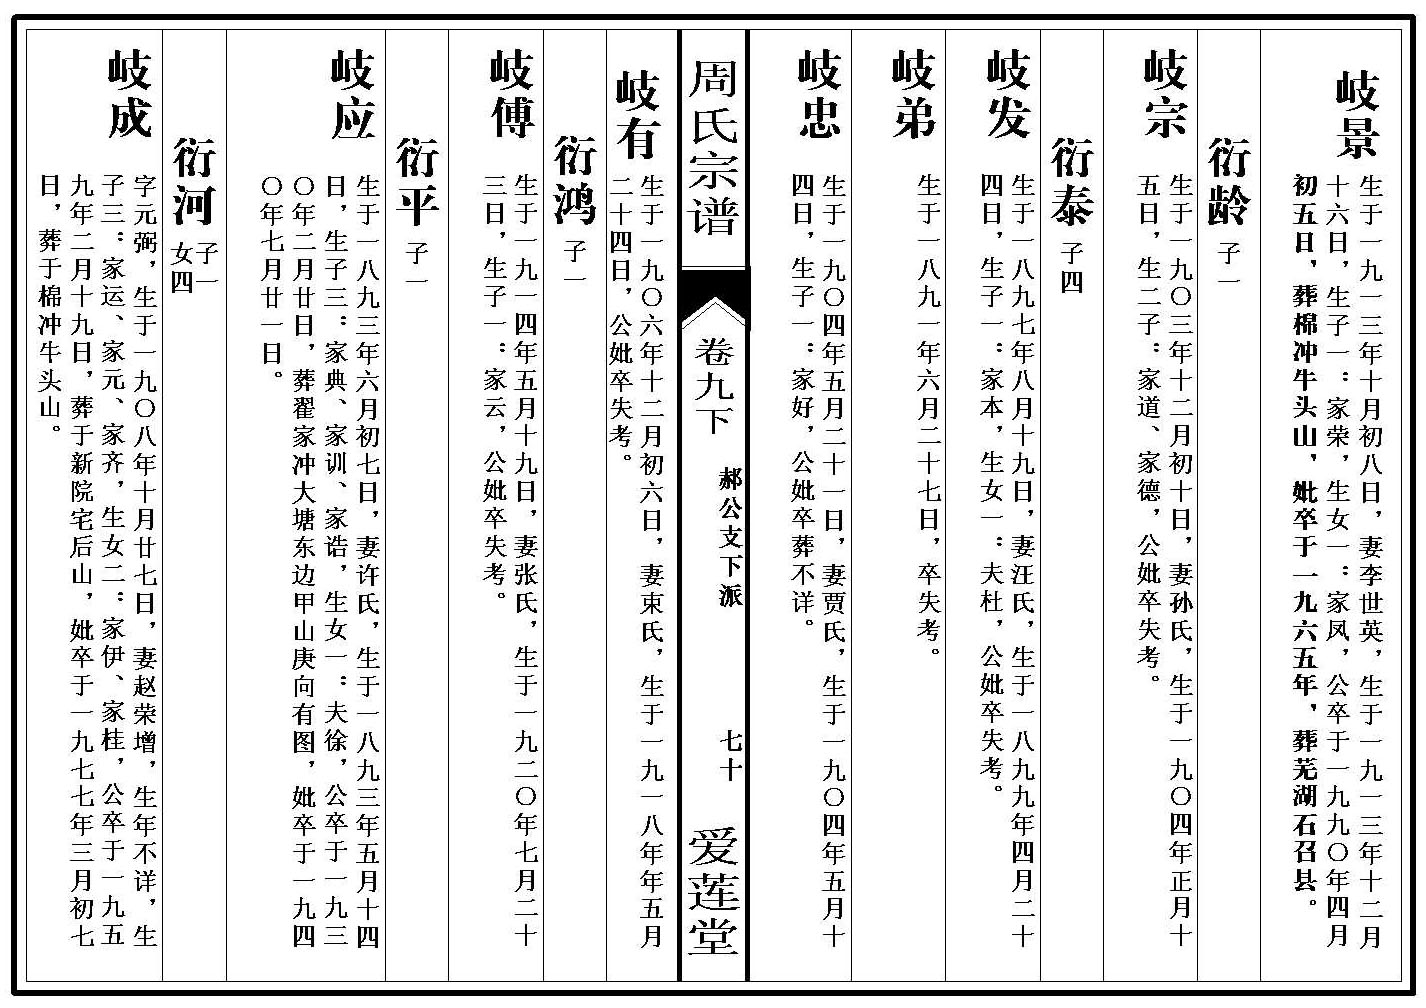 岐景
生于一九一三年十月初八日，妻李世英，生于一九一三年十二月
十六日，生子一：家荣，生女一：家凤，公卒于一九九〇年四月
初五日，葬棉冲牛头山，妣卒于一九六五年，葬芜湖石召县。
衍龄
子一
岐宗
生于一九〇三年十二月初十日，妻孙氏，生于一九〇四年正月十
五日，生二子：家道、家德，公妣卒失考。
衍泰
子四
岐发
生于一八九七年八月十九日，妻汪氏，生于一八九九年四月二十
四日，生子一：家本，生女一：夫杜，公妣卒失考。
岐弟
生于一八九一年六月二十七日，卒失考。
岐忠
生于一九〇四年五月二十一日，妻贾氏，生于一九〇四年五月十
四日，生子一：家好，公妣卒葬不详。
周氏宗谱
卷九下
郝公支下派
七十
爱莲堂
岐有
生于一九〇六年十二月初六日，妻束氏，生于一九一八年年五月
二十四日，公妣卒失考。
衍鸿
子一
岐傅
生于一九一四年五月十九日，妻张氏，生于一九二〇年七月二十
三日，生子一：家云，公妣卒失考。
衍平
子一
岐应
生于一八九三年六月初七日，妻许氏，生于一八九三年五月十四
日，生子三：家典、家训、家诰，生女一：夫徐，公卒于一九三
〇年二月廿日，葬翟家冲大塘东边甲山庚向有图，妣卒于一九四
〇年七月廿一日。
衍河
子一
女四
岐成
字元弼，生于一九〇八年十月廿七日，妻赵荣增，生年不详，生
子三：家运、家元、家齐，生女二：家伊、家桂，公卒于一九五
九年二月十九日，葬于新院宅后山，妣卒于一九七七年三月初七
日，葬于棉冲牛头山。